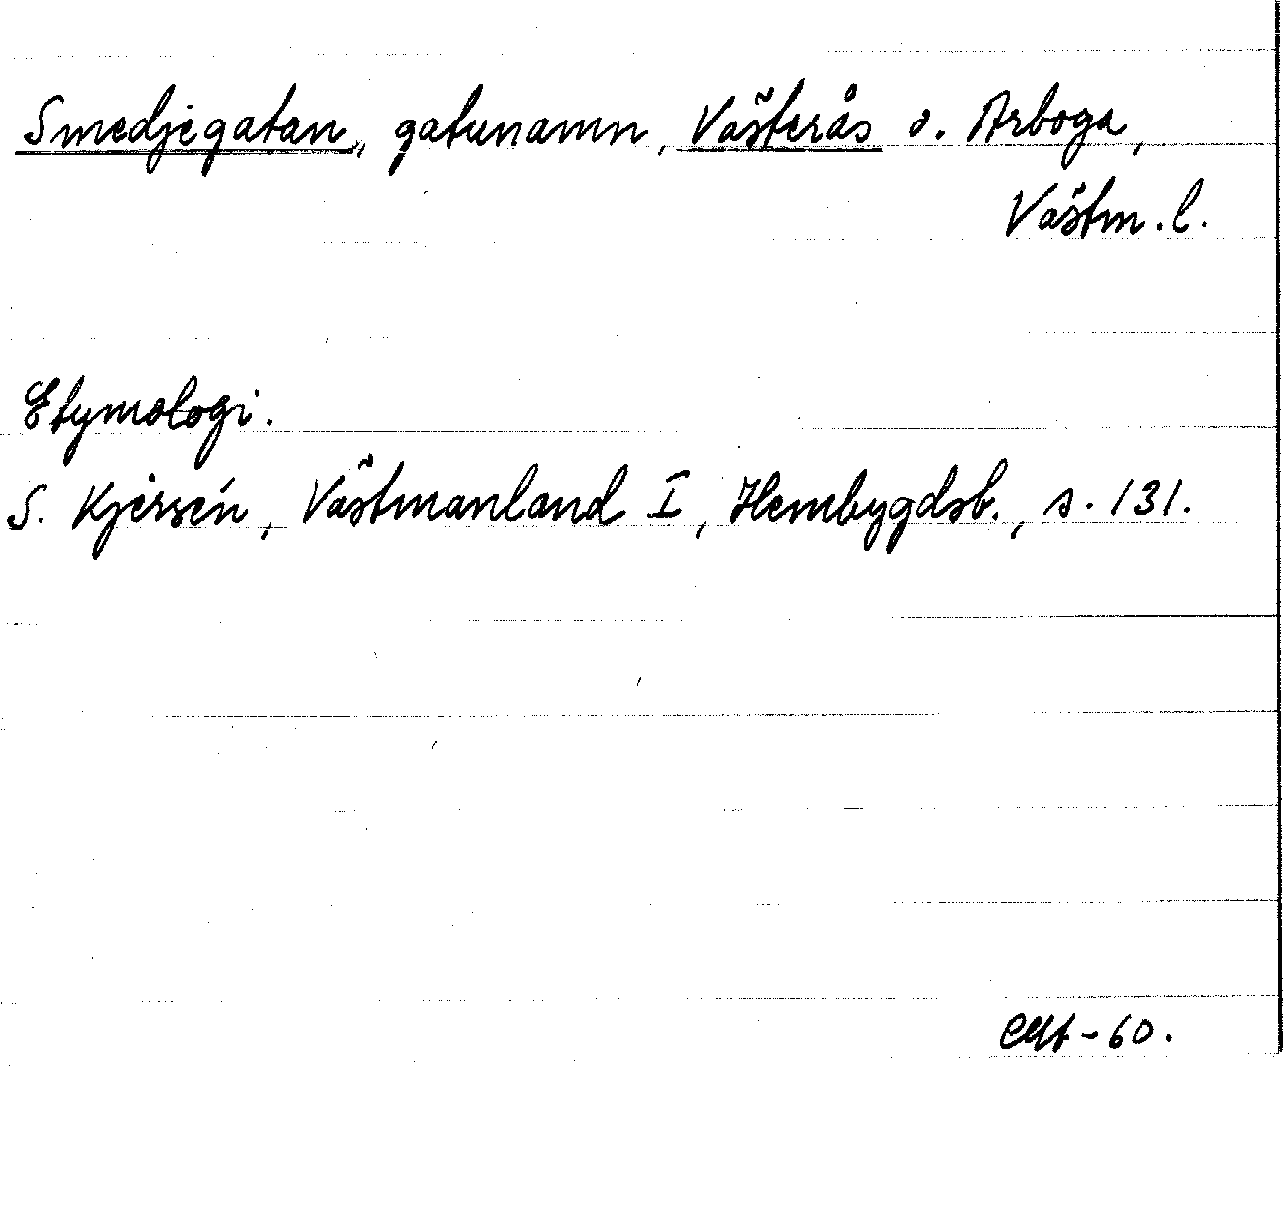 Smedjegatan, gatunamn, Västerås o. Arboga,
Västm. l.
Etymologi.
S. Kjersén, Västmanland I, Hembygdsb., s. 131.
-60.